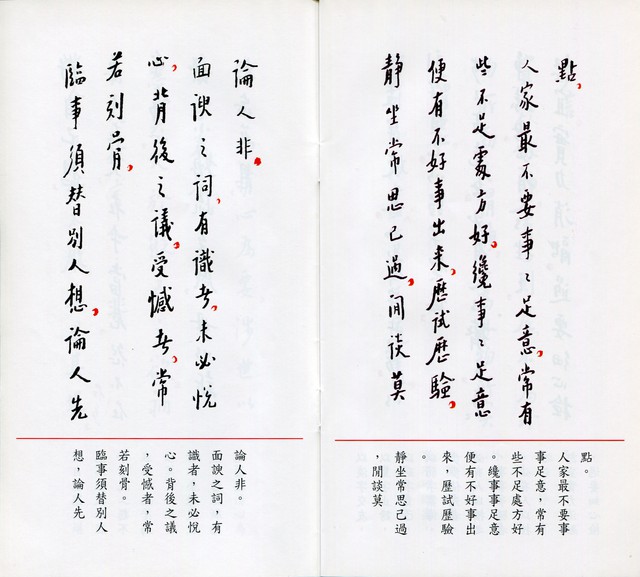 點。
人家最不要事〻足意，常有
些不足處方好。纔事〻足意
便有不好事出来，歷試歷驗。
靜坐常思己過，閒談莫
點。
人家最不要事
事足意，常有
些不足處方好
。纔事事足意
便有不好事出
來，歷試歷驗
。
靜坐常思己過
，閒談莫
論人非。
面諛之詞，有識者，未必悦
心，背後之議，受憾者，常
若刻骨，
臨事須替別人想，論人先
論人非。
面諛之詞，有
識者，未必悅
心。背後之議
，受憾者，常
若刻骨。
臨事須替別人
想，論人先